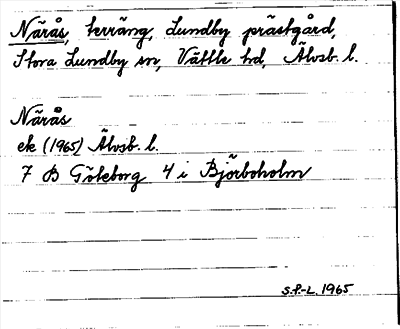 Närås, terräng, Lundby prästgård,
Stora Lundby sn, Vättle hd, Älvsb. l.
Närås
ek (1965) Älvsb. l.
7 B Göteborg 4 i Björboholm
S.P.-L. 1965